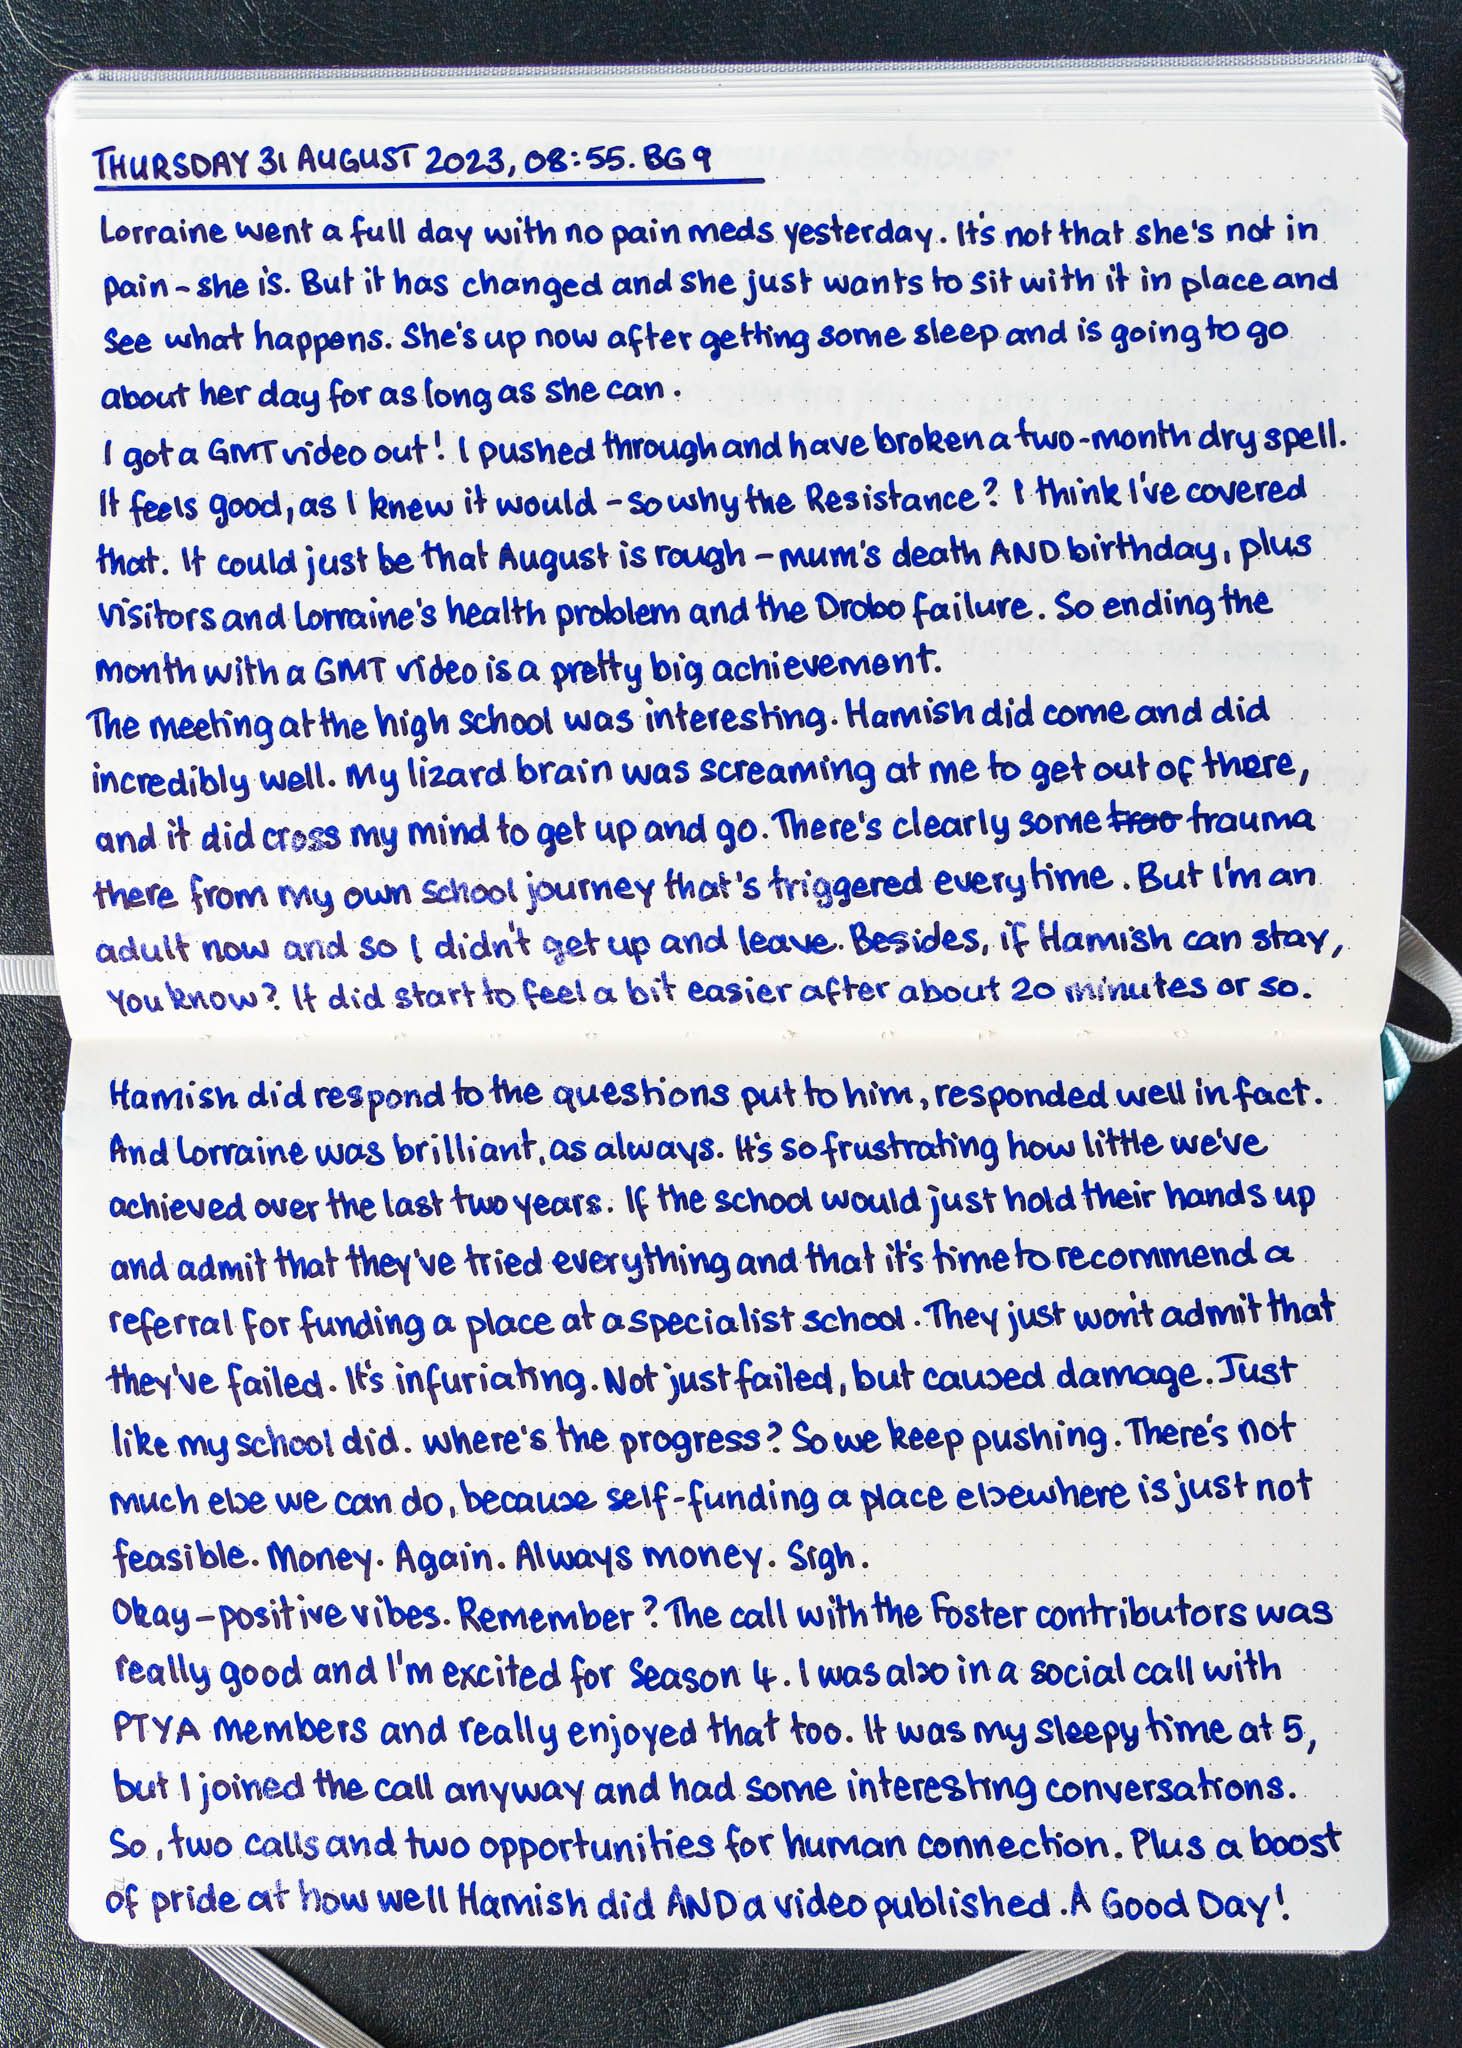 THURSDAY 31 AUGUST 2023, 08:55. BG 9
Lorraine went a full day with no pain meds yesterday. It's not that she's not in
pain – she is. But it has changed and she just wants to sit with it in place and
see what happens. She's up now after getting some sleep and is going to go
about her day for as long as she can.
I got a GMT video out! I pushed through and have broken a two-month dry spell.
It feels good, as I knew it would – so why the Resistance? I think I've covered
that. It could just be that August is rough – mum's death AND birthday, plus
visitors and Lorraine's health problem and the Drobo failure. So ending the
month with a GMT video is a pretty big achievement.
The meeting at the high school was interesting. Hamish did come and did
incredibly well. My lizard brain was screaming at me to get out of there,
and it did cross my mind to get up and go. There's clearly some trao trauma
there from my own school journey that's triggered every time. But I'm an
adult now and so I didn't get up and leave. Besides, if Hamish can stay,
you know? It did start to feel a bit easier after about 20 minutes or so.
Hamish did respond to the questions put to him, responded well in fact.
And Lorraine was brilliant, as always. It's so frustrating how little we've
achieved over the last two years. If the school would just hold their hands up
and admit that they've tried everything and that it's time to recommend a
referral for funding a place at a specialist school. They just won't admit that
they've failed. It's infuriating. Not just failed, but caused damage. Just
like my school did. Where's the progress? So we keep pushing. There's not
much else we can do, because self-funding a place elsewhere is just not
feasible. Money. Again. Always money. Sigh.
Okay – positive vibes. Remember? The call with the Foster contributors was
really good and I'm excited for Season 4. I was also in a social call with
PTYA members and really enjoyed that too. It was my sleepy time at 5,
but I joined the call anyway and had some interesting conversations.
So, two calls and two opportunities for human connection. Plus a boost
of pride at how well Hamish did AND a video published. A Good Day!